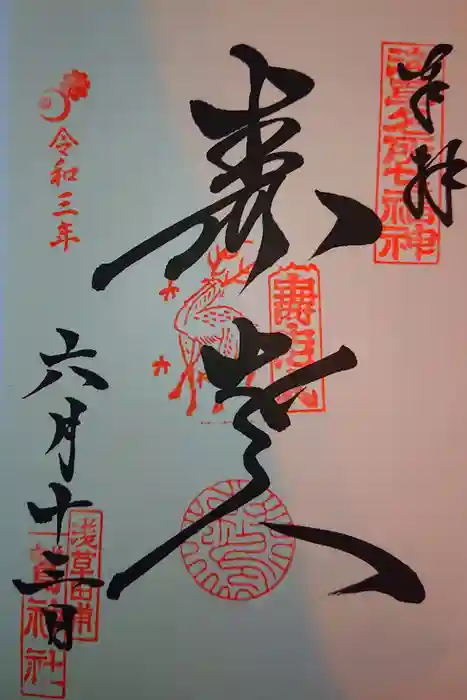 奉拝
浅草名所七福神
寿老人
壽老人
令和三年
六月十三日
浅草田甫
鷲神社